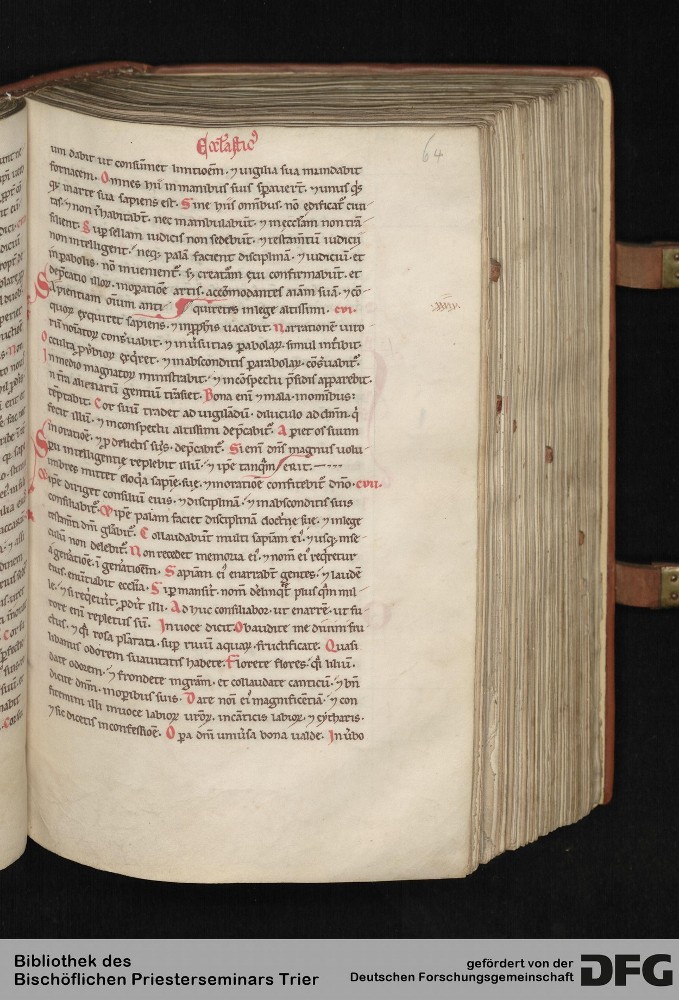 Eccl'astic9
64
um dabit ut consum̄met limitioēm. ⁊ uigilia sua mundabit
fornacem. Omnes hii in manibus suis sperauert̄. ⁊ unusq̇s
arte sua sapiens est. Sine hiis omnibus. nō edificat̉ ciui
tas. ⁊ non ī habitabūt. nec inambulabūt. ⁊ in eccl'am non trā
silient. Sup̱ sellam iudicis non sedebūt. ⁊ testam̄tū iudicii
non intelligent. neq; palā facient disciplinā. ⁊ iudiciū. et
in pabolis. nō inuenient̉. s; creatām eui confirmabūt. et
dep̄catio illor̨. in op̱atione artis. accōmodantes aīam suā. ⁊ cō
quirētes in lege altissimi. cvi.
Sapientiam oīum anti
quor̨ exquiret sapiens. ⁊ in p̱phis uacabit. Narrationē uiro
rū nōīator̨ cōseruabit. ⁊ in uersutias pabolar̨. simul introibit.
Occulta p̱uerbior̨ exq̇ret. ⁊ in absconditis parabolar̨. cōuersabit̉.
In medio magnator̨ ministrabit. ⁊ in cōspectu p̄sidis apparebit.
In terrā alienarū gentiū trāsiet. Bona enī ⁊ mala. in omībus:
tēptabit. Cor suū tradet ad uigilādū. diluculo ad dn̄m. q̇
fecit illū. ⁊ in conspectu altissimi dep̄cabit̉. Aperiet os suum
in oratiōe. ⁊ p̱ delictis suis. dep̄cabit̉. Si enī dn̄s magnus uolu
erit.
Spū intelligentie replebit illū. ⁊ ip̄e tanq̄m
imbres mittet eloq̇a sapīe sue. ⁊ in oratiōe confitebit̉ dn̄o. cvii.
⁊ ip̄e diriget consiliū eius. ⁊ disciplinā. ⁊ in absconditis suis
consiliabit̉. ⁊ Ip̄e palam faciet disciplinā doctrīe sue. ⁊ in lege
testam̄ti dn̄i gl'abit̉. Collaudabunt multi sapīam ei9. ⁊ usq; in se
culū non delebit̉. Non recedet memoria ei9. ⁊ nom̄ ei9 req̇retur
a gēnatiōe. ī gēnatioēm. Sapīam ei9 enarrabt̄ gentes. ⁊ laudē
eius. enūtiabit eccl'ia. Si p̱manserit. nom̄ delinq̄t plus q̄m mil
le. ⁊ si req̇euit. p̱derit illi. Ad huc consiliabor. ut enarrē. ut fu
rore enī repletus sū. In uoce dicit. Obaudite me diuini fru
ctus. ⁊ q̄si rosa plātata. sup̱ riuū aquar̨. fructificate. Quasi
libanus odorem suauitatis habete. Florete flores. q̄si liliū.
date odorem. ⁊ frondete in grām. et collaudate canticū. ⁊ bn̄
dicite dn̄m. in op̱ibus suis. Date nōī ei9 magnificētiā. ⁊ con
fitemini illi in uoce labior̨ uror̨. in cāticis labior̨. ⁊ cytharis.
⁊ sic dicetis in confessiōe. Opa dn̄i uniūsa bona ualde. In ūbo
Bibliothek des
Bischöflichen Priesterseminars Trier
gefördert von der
Deutschen Forschungsgemeinschaft
DFG